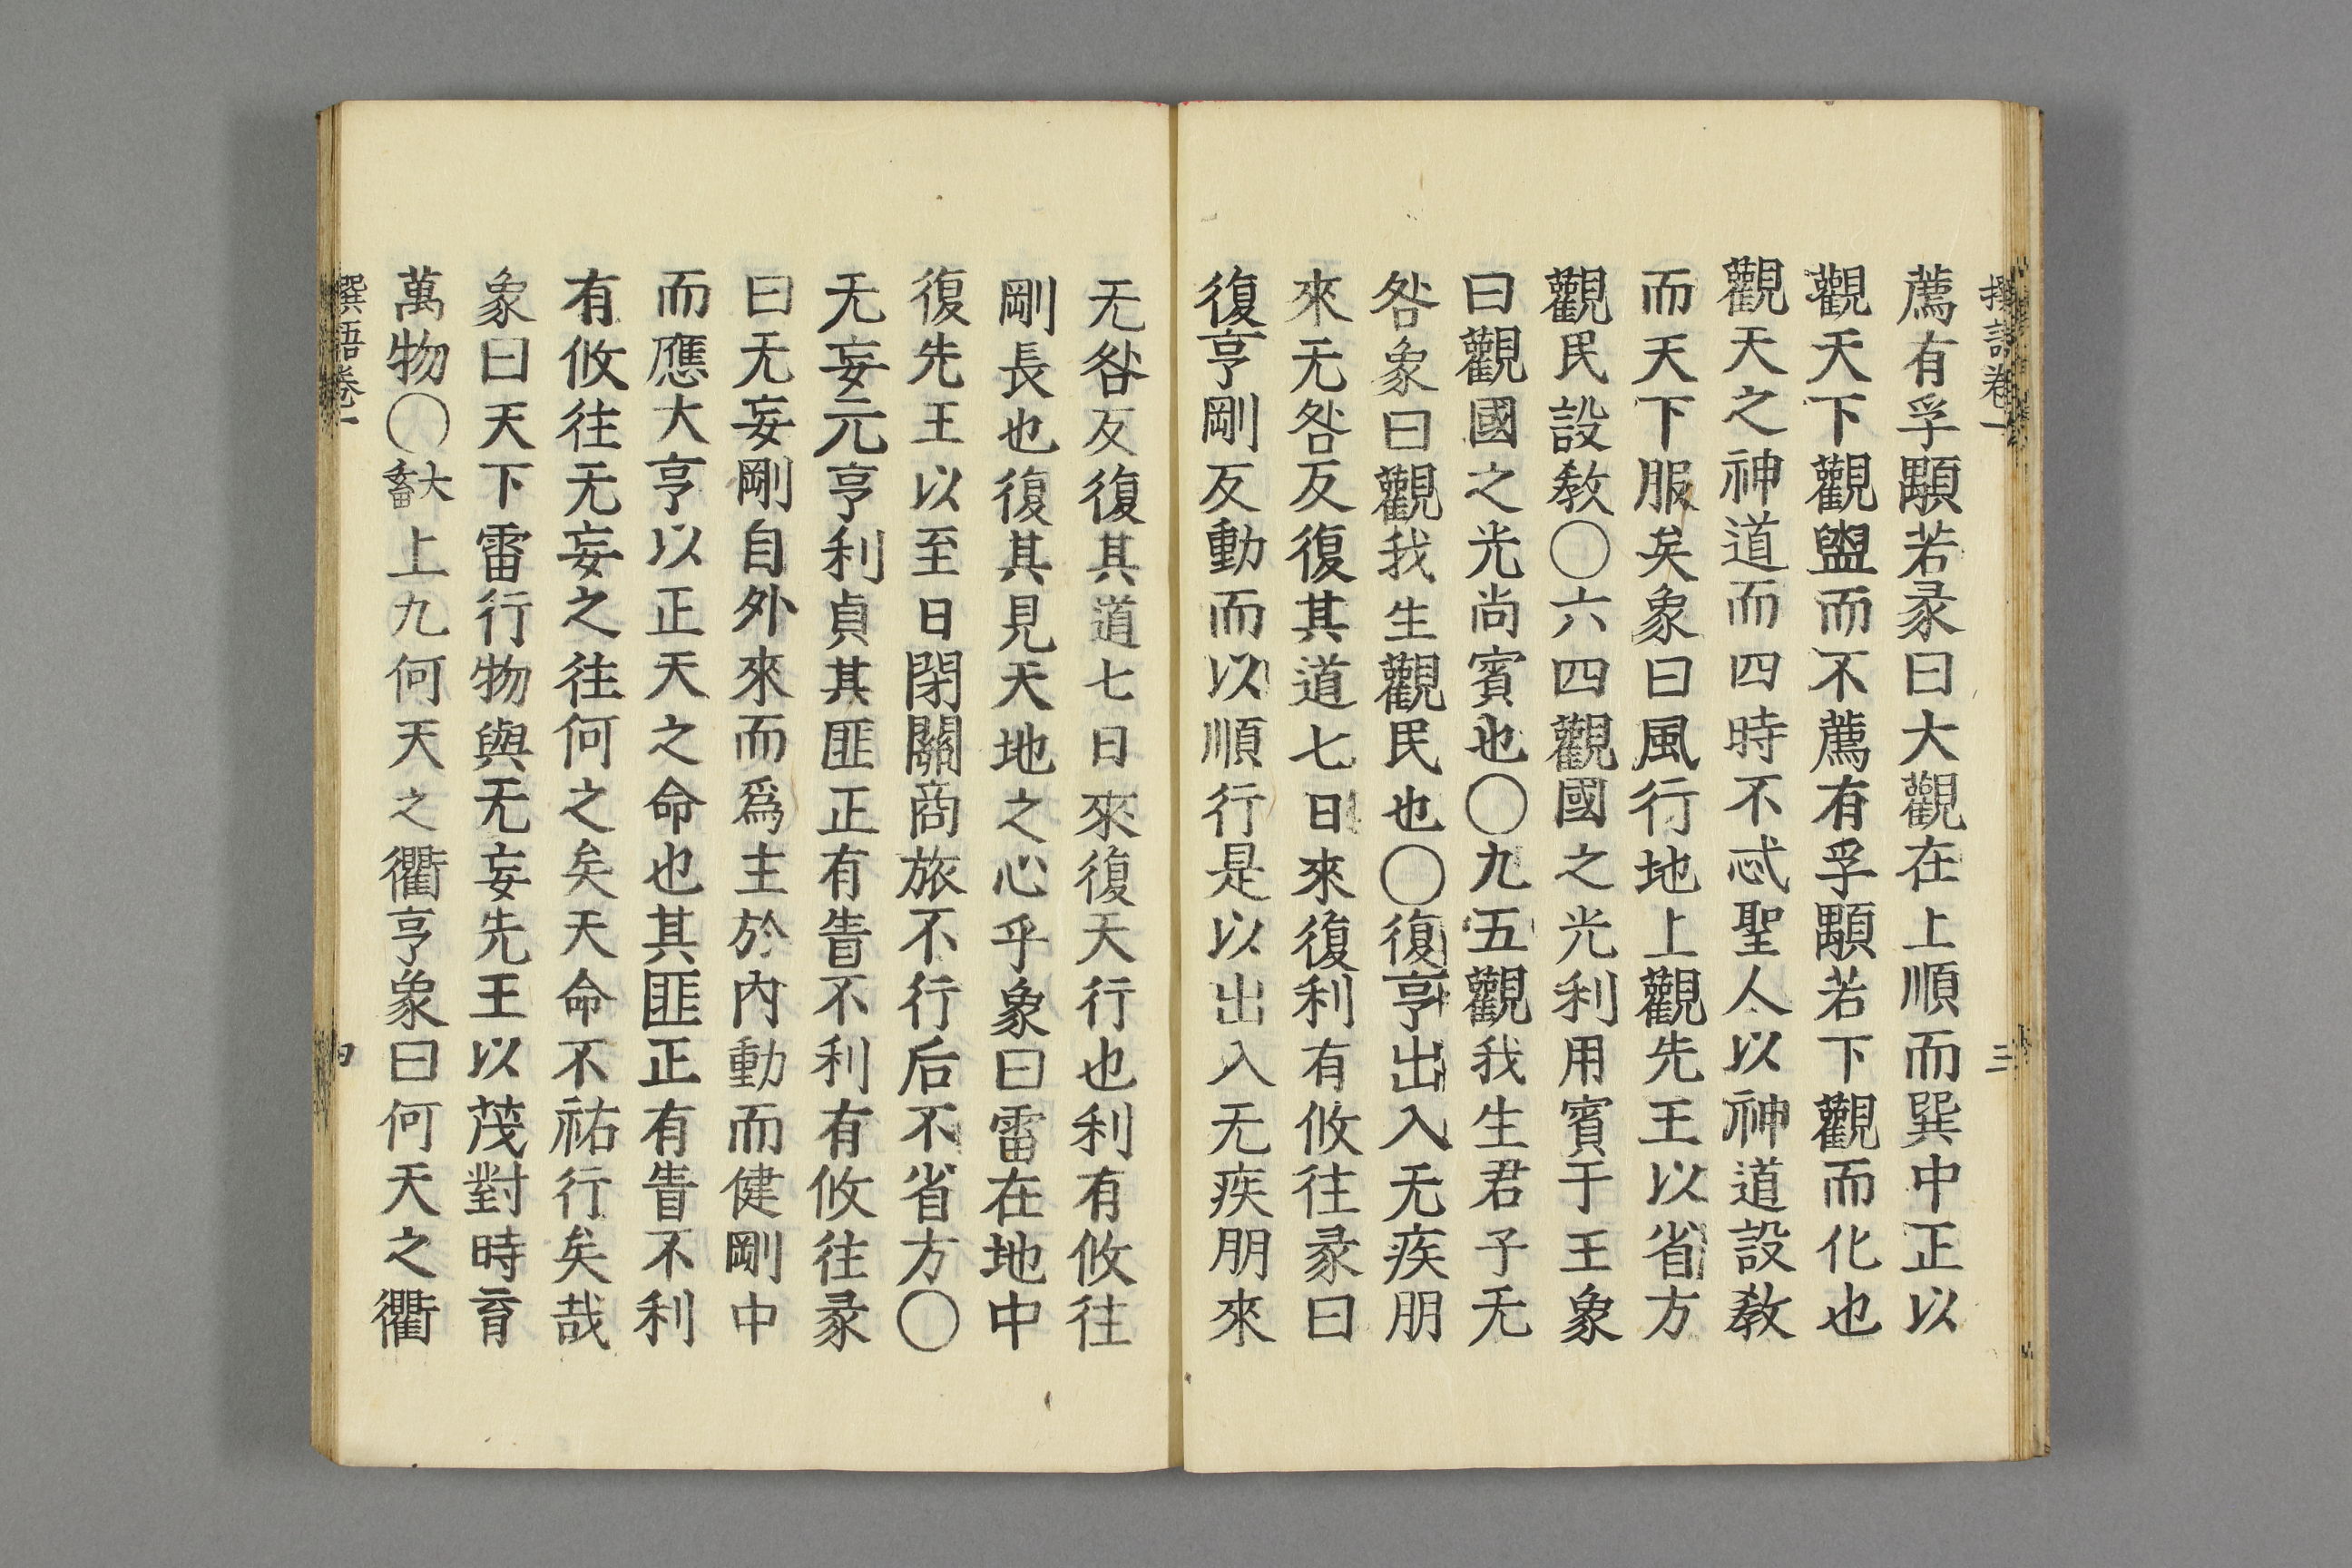 撰語卷一 三
薦有孚顒若彖曰大觀在上順而巽中正以
觀天下觀盥而不薦有孚顒若下觀而化也
觀天之神道而四時不忒聖人以神道設教
而天下服矣象曰風行地上觀先王以省方
觀民設教〇六四觀國之光利用賓于王象
曰觀國之光尚賓也〇九五觀我生君子无
咎象曰觀我生觀民也〇復亨出入无疾朋
來无咎反復其道七日來復利有攸往彖曰
復亨剛反動而以順行是以出入无疾朋來
无咎反復其道七日來復天行也利有攸往
剛長也復其見天地之心乎象曰雷在地中
復先王以至日閉關商旅不行后不省方〇
无妄元亨利貞其匪正有眚不利有攸往彖
曰无妄剛自外來而爲主於內動而健剛中
而應大亨以正天之命也其匪正有眚不利
有攸往无妄之往何之矣天命不祐行矣哉
象曰天下雷行物與无妄先王以茂對時育
萬物〇大畜上九何天之衢亨象曰何天之衢
撰語卷一 四